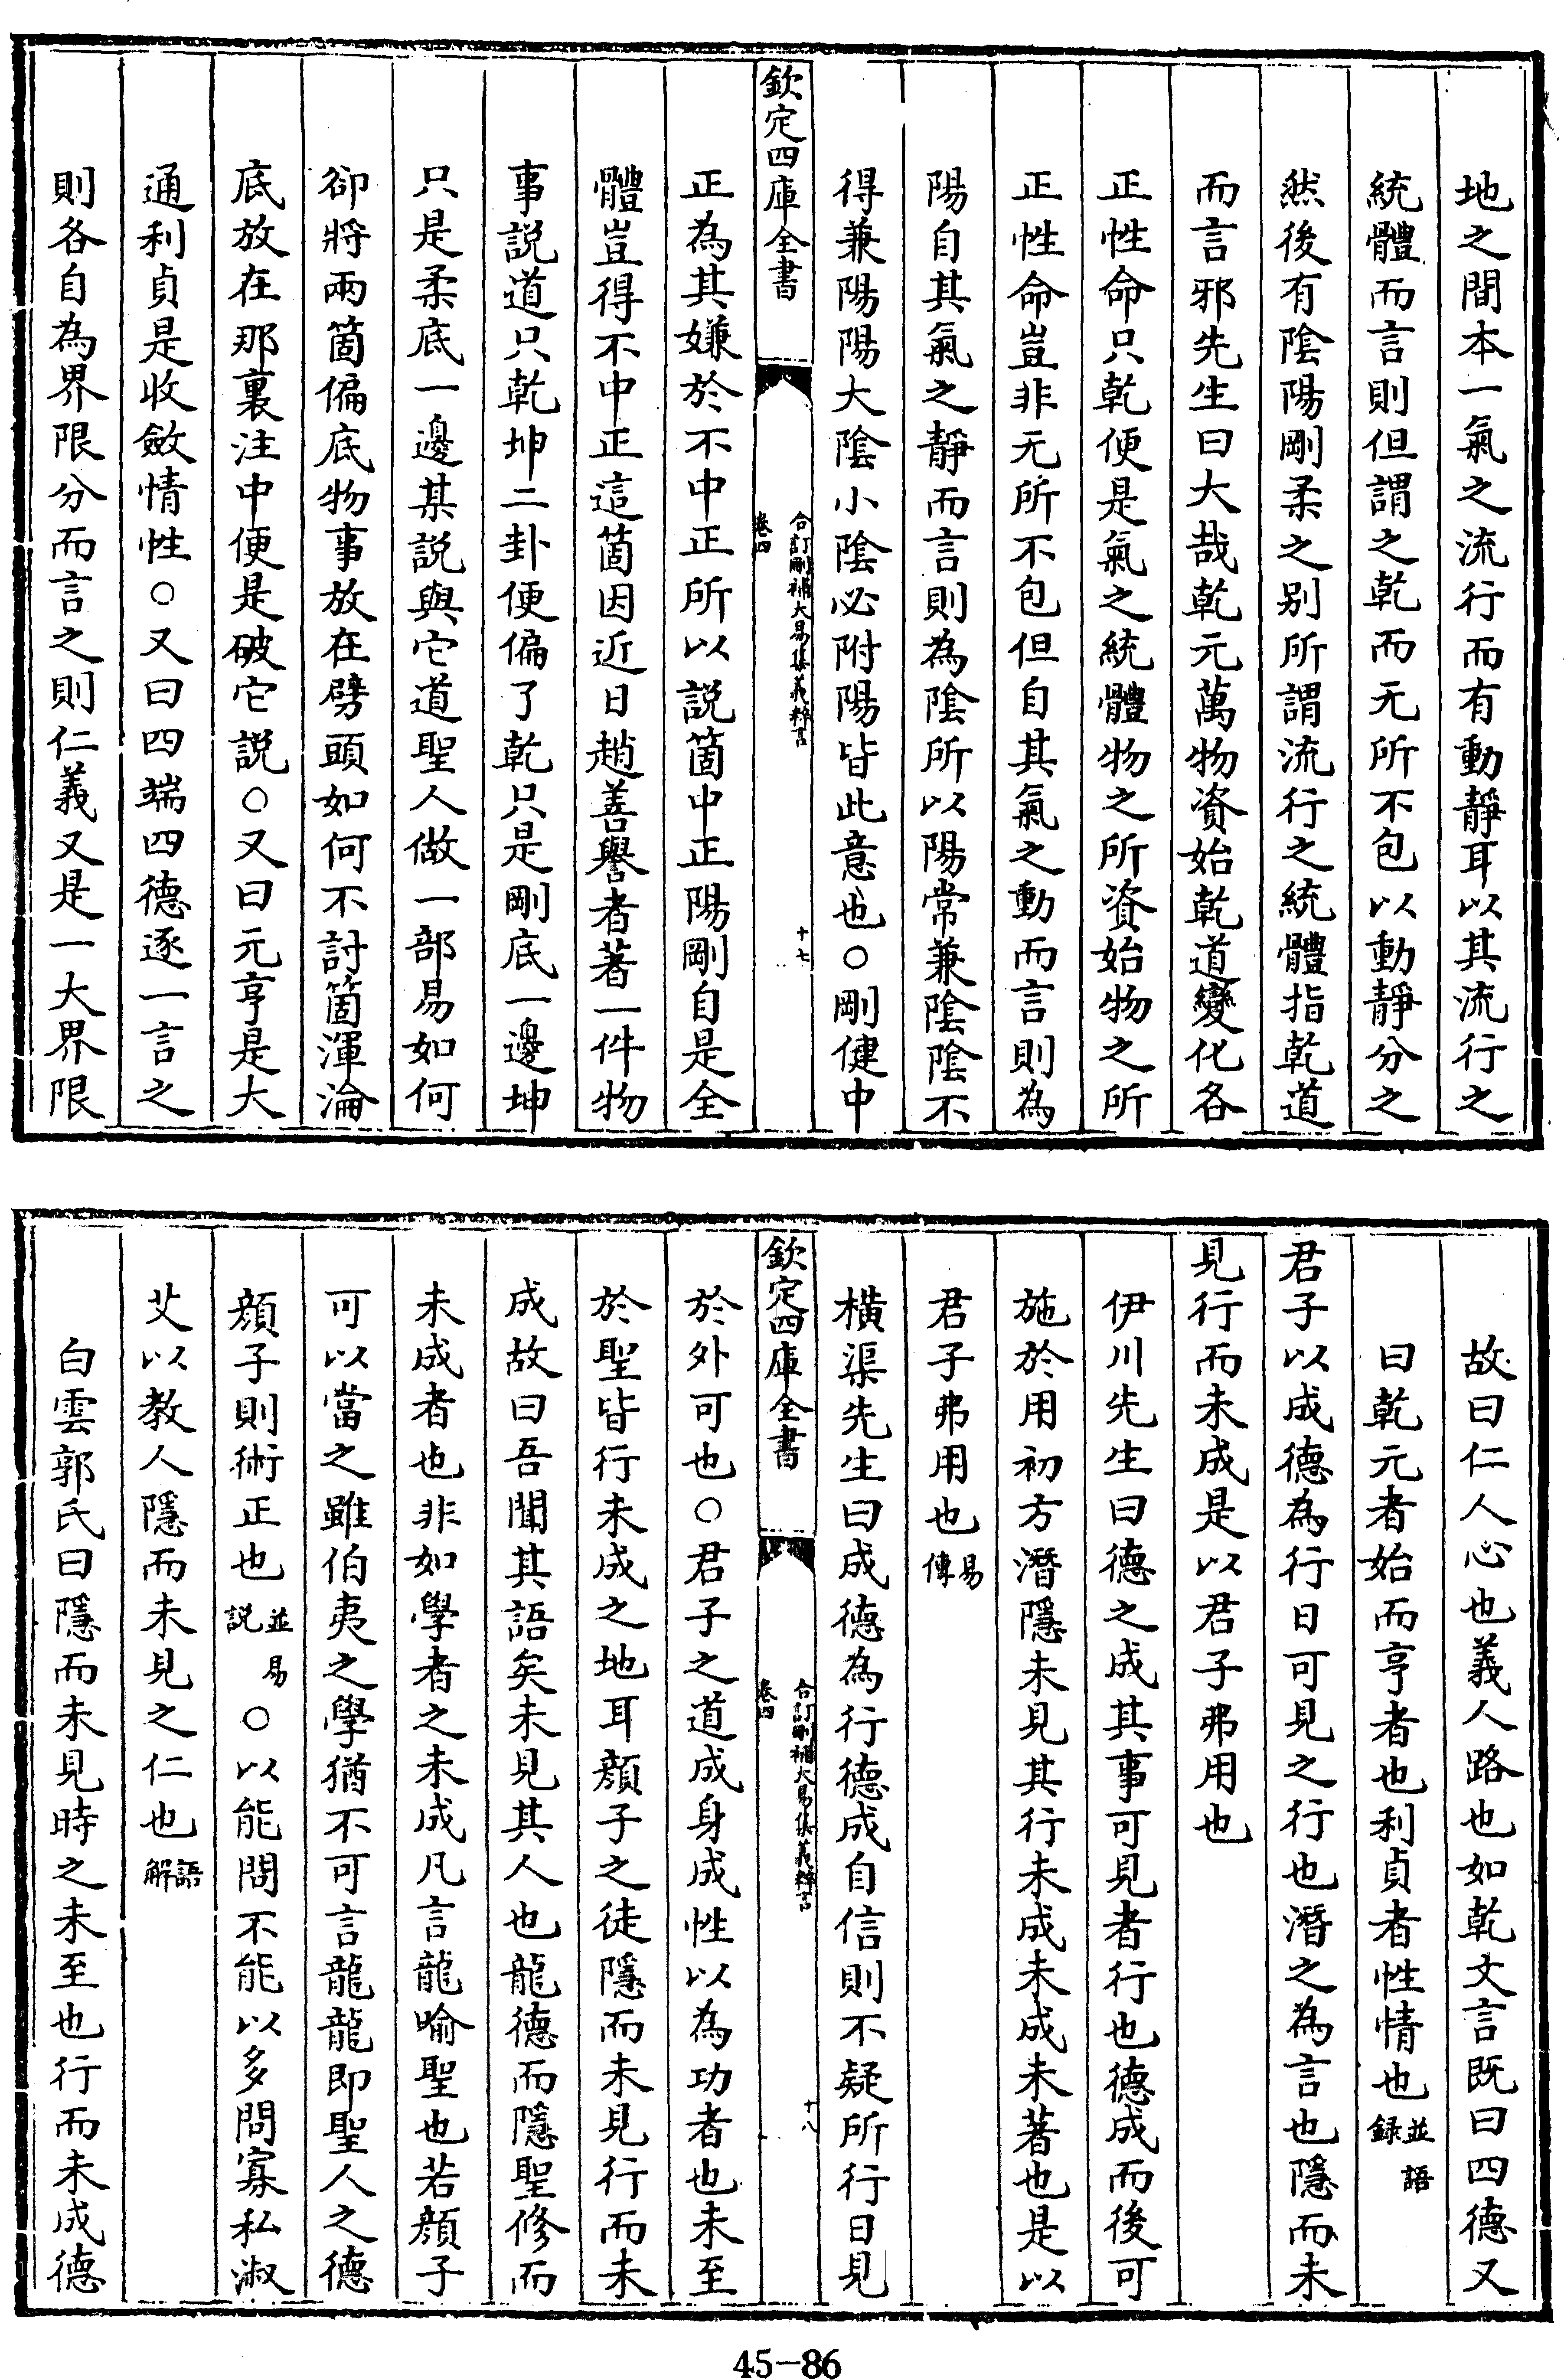 地之間本一氣之流行而有動靜耳以其流行之
統體而言則但謂之乾而无所不包以動靜分之
然後有陰陽剛柔之别所謂流行之統體指乾道
而言邪先生曰大哉乾元萬物資始乾道變化各
正性命只乾便是氣之統體物之所資始物之所
正性命豈非无所不包但自其氣之動而言則為
陽自其氣之靜而言則為陰所以陽常兼陰陰不
得兼陽陽大陰小陰必附陽皆此意也○剛健中
欽定四庫全書
合訂刪補大易集義粹言
卷四
十七
正為其嫌於不中正所以説箇中正陽剛自是全
體豈得不中正這箇因近日趙善譽者著一件物
事説道只乾坤二卦便偏了乾只是剛底一邊坤
只是柔底一邊某説與它道聖人做一部易如何
卻將兩箇偏底物事放在劈頭如何不討箇渾淪
底放在那裏注中便是破它説○又曰元亨是大
通利貞是收斂情性○又曰四端四德逐一言之
則各自為界限分而言之則仁義又是一大界限
故曰仁人心也義人路也如乾文言既曰四德又
曰乾元者始而亨者也利貞者性情也並語錄
君子以成德為行日可見之行也潛之為言也隱而未
見行而未成是以君子弗用也
伊川先生曰德之成其事可見者行也德成而後可
施於用初方潛隱未見其行未成未成未著也是以
君子弗用也易傳
橫渠先生曰成德為行德成自信則不疑所行日見
欽定四庫全書
合訂刪補大易集義粹言
卷四
十八
於外可也○君子之道成身成性以為功者也未至
於聖皆行未成之地耳顏子之徒隱而未見行而未
成故曰吾聞其語矣未見其人也龍德而隱聖修而
未成者也非如學者之未成凡言龍喻聖也若顏子
可以當之雖伯夷之學猶不可言龍龍即聖人之德
顏子則術正也並易説○以能問不能以多問寡私淑
艾以教人隱而未見之仁也語解
白雲郭氏曰隱而未見時之未至也行而未成德
45-86